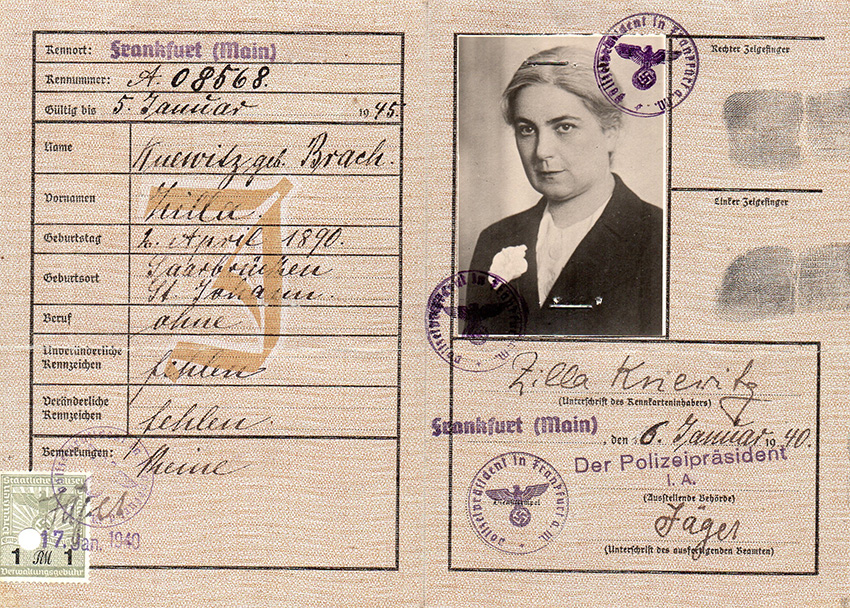 Kennort: Frankfurt (Main)
Kennummer: A 08568.
Gültig bis 5. Januar 1945.
Name
Kniewitz geb. Brach.
Vornamen
Zilla.
Geburtstag
2. April 1890.
Geburtsort
Saarbrücken
St. Johann.
Beruf
ohne
Unveränderliche
Kennzeichen
fehlen
Veränderliche
Kennzeichen
fehlen.
Bemerkungen:
Keine
J
Preußen
Staatliche Polizei
17. Jan. 1940
1 RM 1
Verwaltungsgebühr
Polizeipräsident in Frankfurt a. M.
Rechter Zeigefinger
Linker Zeigefinger
Polizeipräsident in Frankfurt a. M.
Zilla Kniewitz
(Unterschrift des Kennkarteninhabers)
Frankfurt (Main), den 6. Januar 1940.
Der Polizeipräsident
I. A.
(Ausstellende Behörde)
Polizeipräsident in Frankfurt a. M.
Dienststempel
Jäger
(Unterschrift des ausfertigenden Beamten)